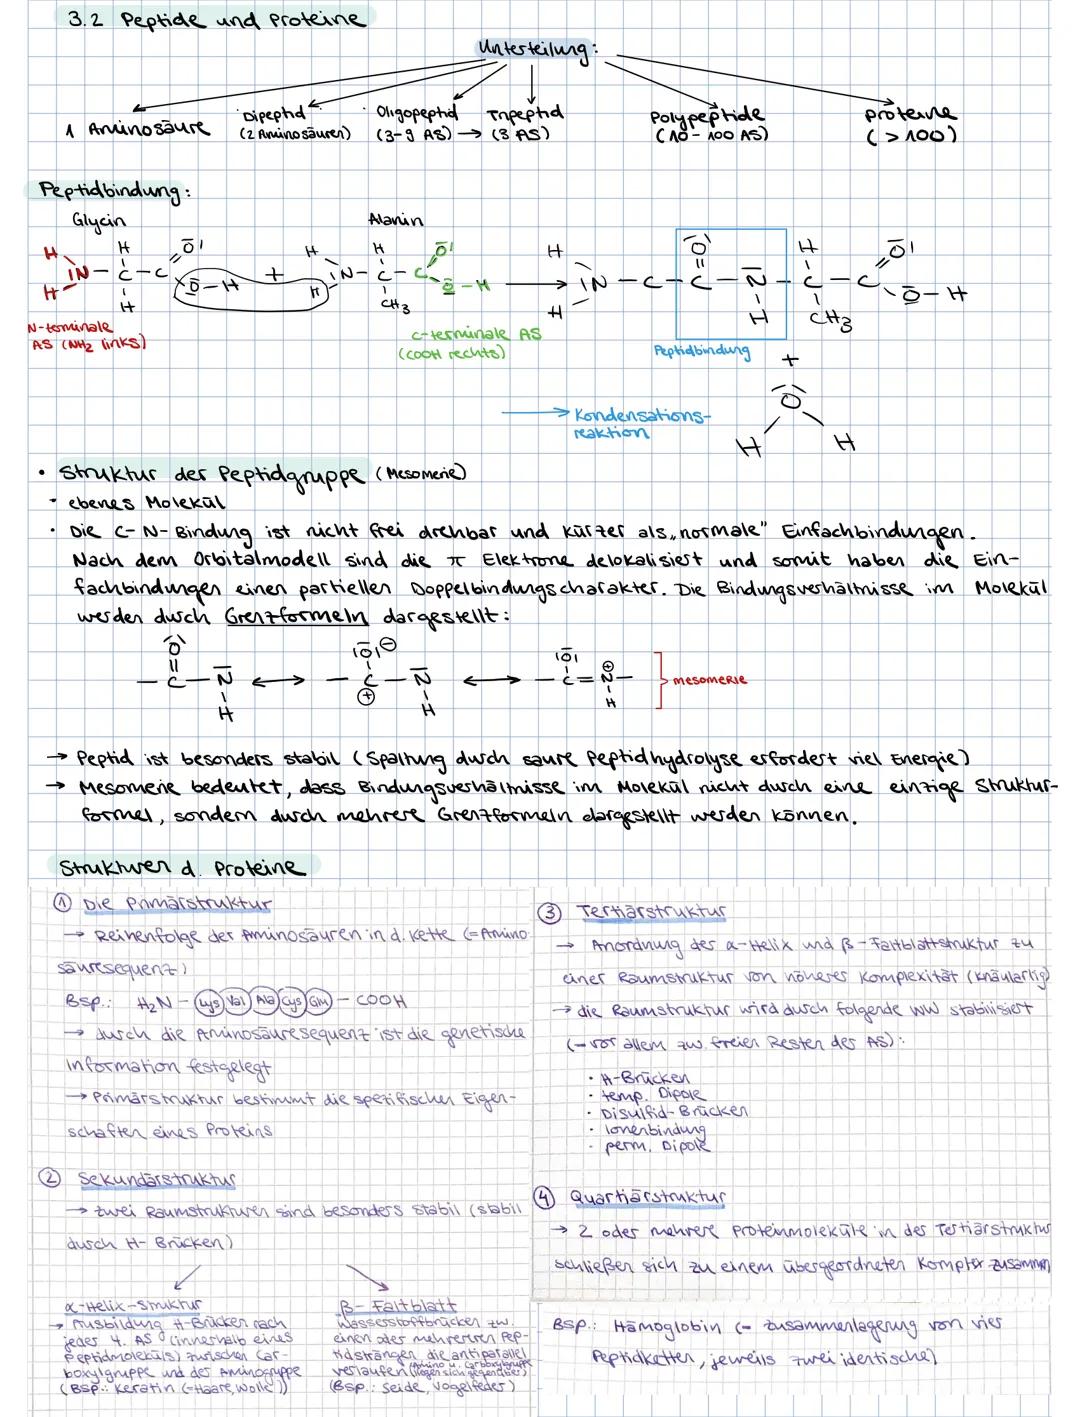 3.2 Peptide und Proteine
Unterteilung:
1 Aminosäure
Dipeptid
(2 Aminosäuren)
Oligopeptid
(3-9 AS) →
Tripeptid
(3 AS)
Polypeptide
(10-100 AS)
Proteine
(>100)
Peptidbindung:
Glycin
Alanin
N-terminale
AS (NH2 links)
C-terminale AS
(COOH rechts)
Peptidbindung
+
→ Kondensations-
reaktion
• Struktur der Peptidgruppe (Mesomerie)
- ebenes Molekül
• Die C-N-Bindung ist nicht frei drehbar und kürzer als „normale" Einfachbindungen.
Nach dem Orbitalmodell sind die π Elektrone delokalisiert und somit haben die Ein-
fachbindungen einen partiellen Doppelbindungscharakter. Die Bindungsverhältnisse im Molekül
werden durch Grenzformeln dargestellt:
mesomerie
→ Peptid ist besonders stabil (Spaltung durch saure Peptidhydrolyse erfordert viel Energie)
→ Mesomerie bedeutet, dass Bindungsverhältnisse im Molekül nicht durch eine einzige Struktur-
formel, sondern durch mehrere Grenzformeln dargestellt werden können.
Strukturen d. Proteine
① Die Primärstruktur
→ Reihenfolge der Aminosäuren in d. Kette (=Amino-
säuresequenz)
Bsp.: H2N - Lys Val Ala Cys Glu - COOH
→ durch die Aminosäuresequenz ist die genetische
Information festgelegt
→ Primärstruktur bestimmt die spezifischen Eigen-
schaften eines Proteins
② Sekundärstruktur
→ zwei Raumstrukturen sind besonders stabil (stabil
durch H-Brücken)
α-Helix-Struktur
→ Ausbildung H-Brücken nach
jeder 4. AS (innerhalb eines
Peptidmoleküls) zwischen Car-
boxylgruppe und der Aminogruppe
(Bsp.: Keratin (=Haare, Wolle))
β-Faltblatt
Wasserstoffbrücken zw.
einen oder mehreren Pep-
tidsträngen die antiparallel
verlaufen (Amino u. Carboxylgruppe
liegen sich gegenüber)
(Bsp.: Seide, Vogelfeder)
③ Tertiärstruktur
→ Anordnung der α-Helix und β-Faltblattstruktur zu
einer Raumstruktur von höherer Komplexität (knäulartig)
→ die Raumstruktur wird durch folgende WW stabilisiert
(- vor allem zw. freien Resten der AS):
• H-Brücken
• temp. Dipole
• Disulfid-Brücken
• Ionenbindung
• perm. Dipole
④ Quartiärstruktur
→ 2 oder mehrere Proteinmoleküle in der Tertiärstruktur
schließen sich zu einem übergeordneten Komplex zusammen
Bsp.: Hämoglobin (- Zusammenlagerung von vier
Peptidketten, jeweils zwei identische)